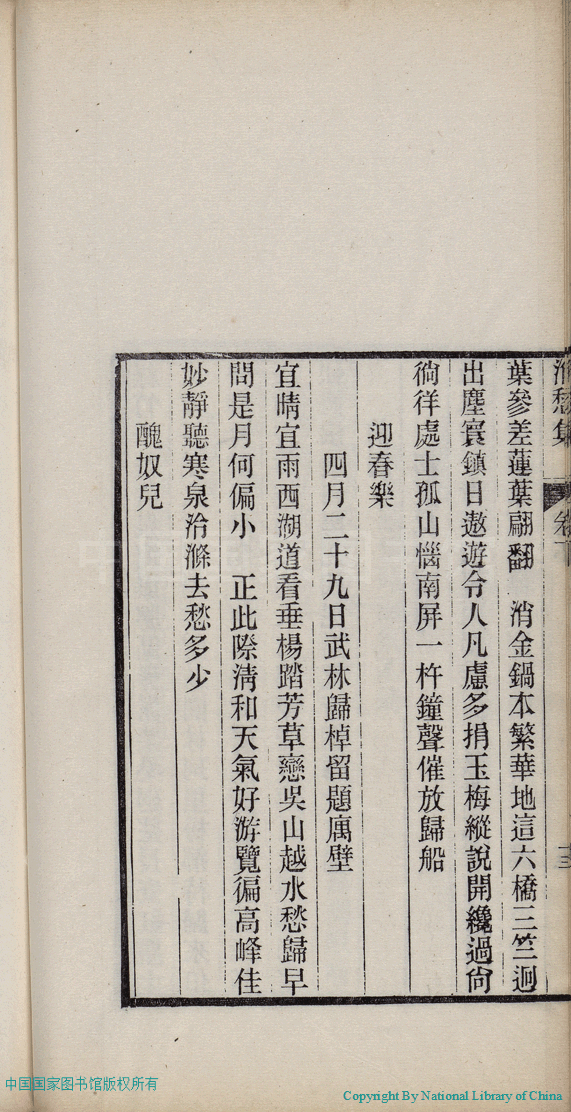 消愁集 卷下 十三
葉參差蓮葉翩翻　消金鍋本繁華地這六橋三竺迥
出塵寰鎮日遨遊令人凡慮多捐玉梅縱說開纔過尙
徜徉處士孤山惱南屏一杵鐘聲催放歸船
迎春樂
四月二十九日武林歸棹留題寓壁
宜晴宜雨西湖道看垂楊踏芳草戀吳山越水愁歸早
問是月何偏小　正此際淸和天氣好游覽徧高峰佳
妙靜聽寒泉冾滌去愁多少
醜奴兒
中国国家图书馆版权所有
Copyright By National Library of China